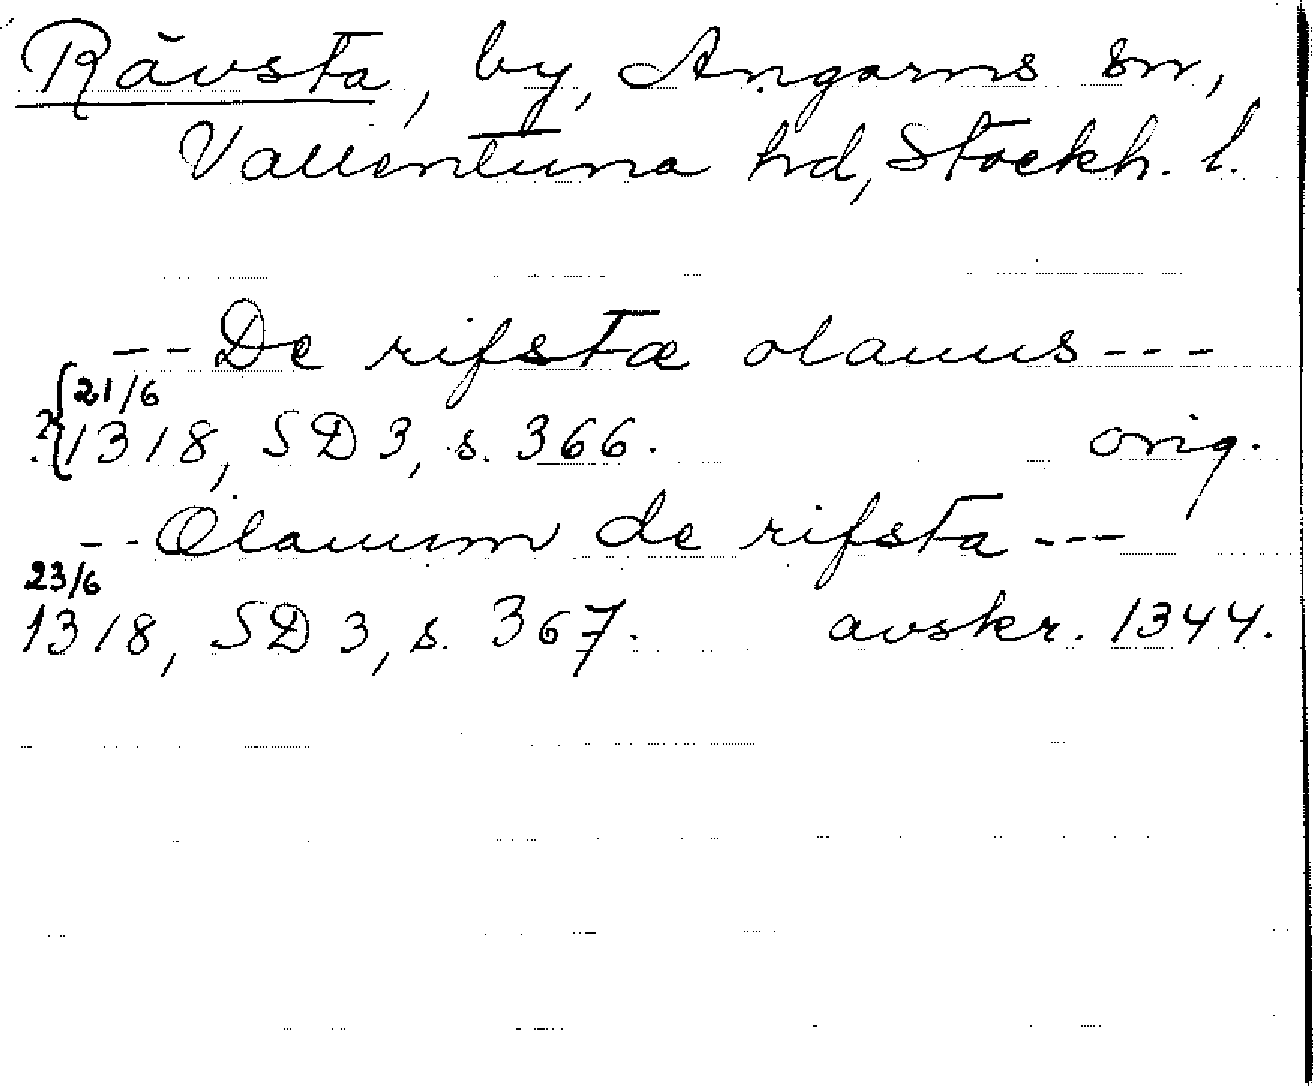 Rävsta, by, Angarns sn,
Vallentuna hd, Stockh. l.
-- De rifstæ olauus ---
21/6
?{1318, SD 3, s. 366. orig.
-- Olauum de rifsta ---
23/6
1318, SD 3, s. 367. avskr. 1344.